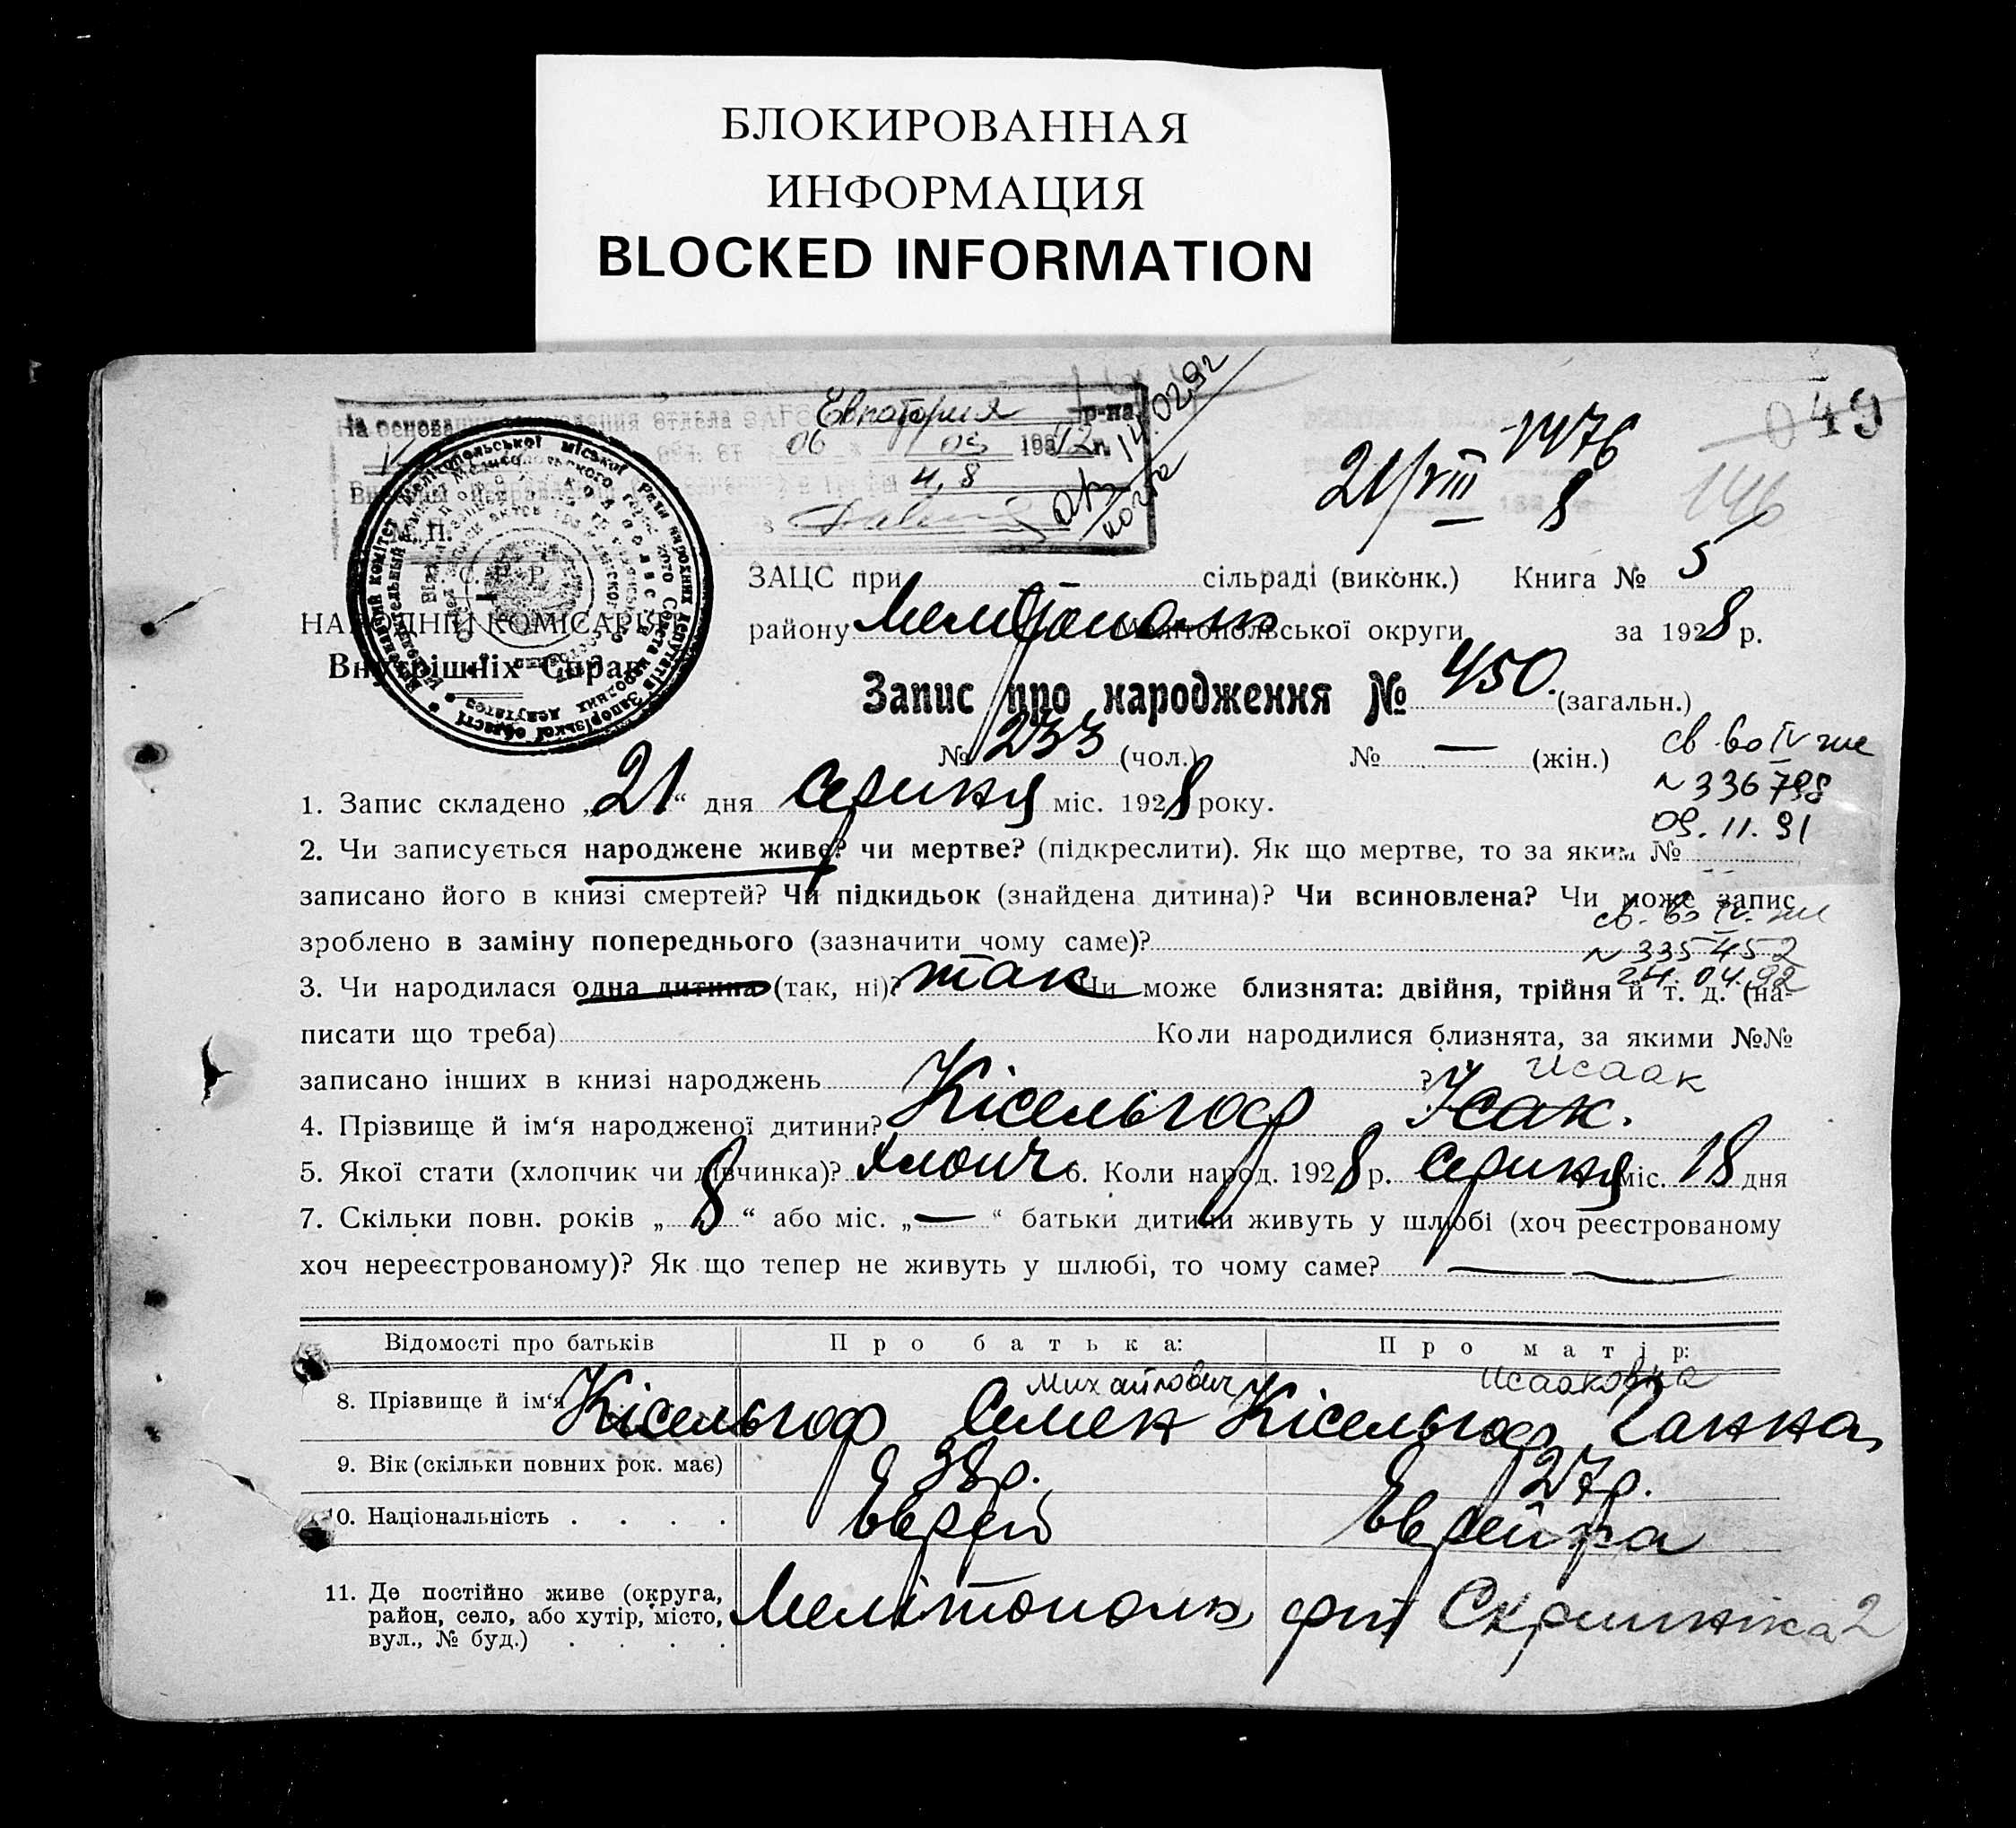 БЛОКИРОВАННАЯ
ИНФОРМАЦИЯ
BLOCKED INFORMATION
Евпатория р-на
06 03 1992г.
4, 8
14.02.92
М. П.
049
1476
21/VIII 8
146
ЗАЦС при сільраді (виконк.) Книга № 5
НАРОДНІЙ КОМІСАРІЯТ
району Мелітополь Мелітопольської округи за 1928 р.
Внутрішніх Справ
Запис про народження № 450. (загальн.)
№ 233 (чол.) № — (жін.)
св-во IV жс
№ 336798
09.11.91
1. Запис складено „21“ дня Серпня міс. 1928 року.
2. Чи записується народжене живе? чи мертве? (підкреслити). Як що мертве, то за яким №
записано його в книзі смертей? Чи підкидьок (знайдена дитина)? Чи всиновлена? Чи може запис
св-во IV-жс
зроблено в заміну попереднього (зазначити чому саме)?
№ 335452
24.04.92
3. Чи народилася одна дитина (так, ні)? так Чи може близнята: двійня, трійня й т. д. (на-
писати що треба) Коли народилися близнята, за якими №№
записано інших в книзі народжень ?
Исаак
4. Прізвище й ім‘я народженої дитини? Кісельгоф Ісак.
5. Якої стати (хлопчик чи дівчинка)? хлопч 6. Коли народ. 1928 р. Серпня міс. 18 дня
7. Скільки повн. років „8“ або міс. „—“ батьки дитини живуть у шлюбі (хоч реєстрованому
хоч нереєстрованому)? Як що тепер не живуть у шлюбі, то чому саме? —
Відомості про батьків Про батька: Про матір:
Михайлович Исааковна
8. Прізвище й ім‘я Кісельгоф Семен Кісельгоф Ганна
9. Вік (скільки повних рок. має) 38р. 27р.
10. Національність . . . . Еврей Еврейка
11. Де постійно живе (округа,
район, село, або хутір, місто,
вул., № буд.) . . . .
Мелітополь Скрипніка 2